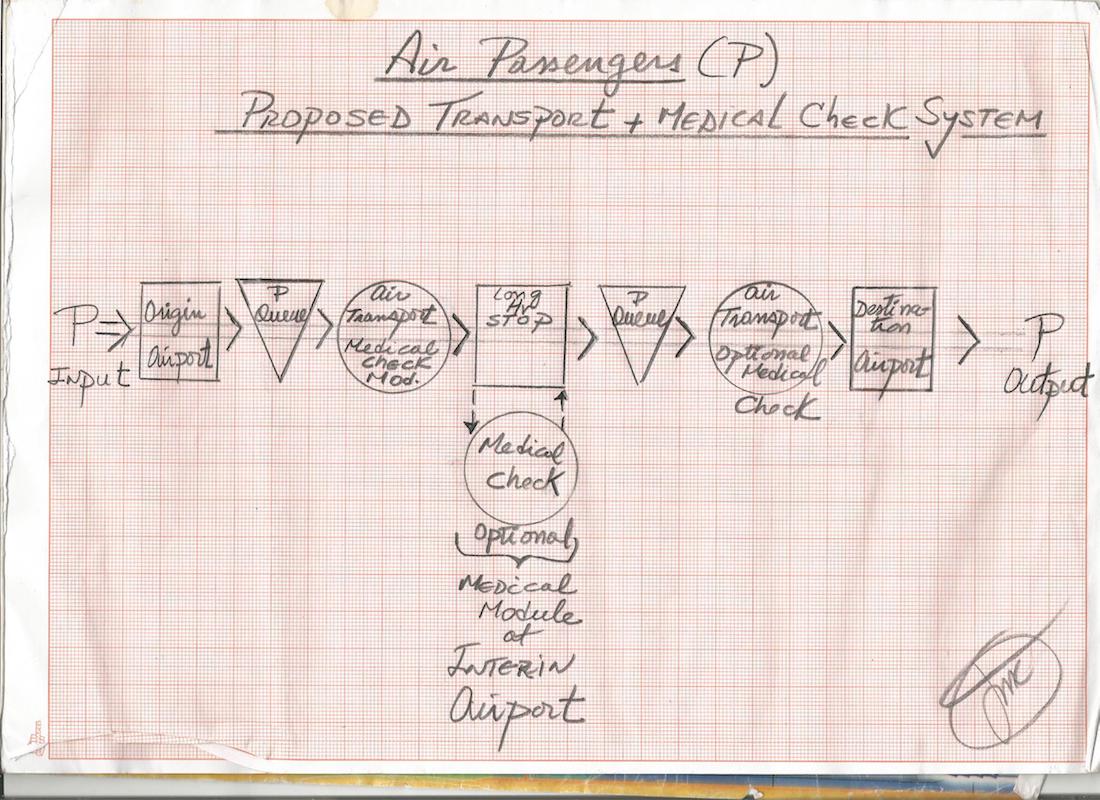 Air Passengers (P)
PROPOSED TRANSPORT + MEDICAL Check SYSTEM
P
Input
Origin
airport
P
Queue
air
Transport
Medical
check
Mod.
Long
Hr
STOP
P
Queue
air
Transport
Optional
Medical
Check
Destina-
tion
airport
P
Output
Medical
check
Optional
MEDical
Module
at
INTERIN
airport